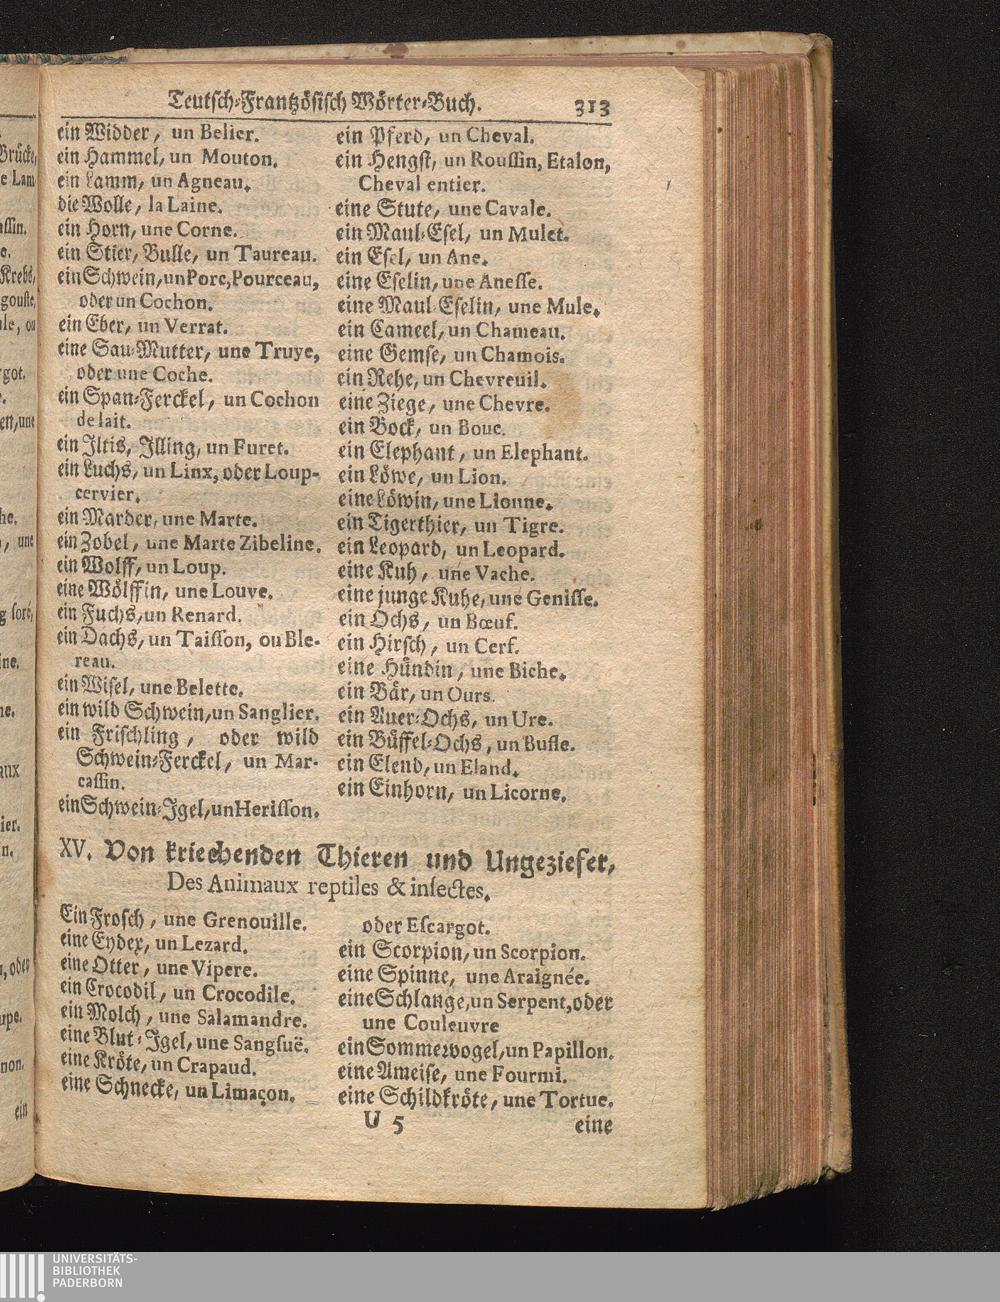 Teutsch-Frantzösisch Wörter-Buch. 313
ein Widder, un Belier.
ein Hammel, un Mouton.
ein Lamm, un Agneau.
die Wolle, la Laine.
ein Horn, une Corne.
ein Stier, Bulle, un Taureau.
ein Schwein, un Porc, Pourceau,
oder un Cochon.
ein Eber, un Verrat.
eine Sau-Mutter, une Truye,
oder une Coche.
ein Span-Ferckel, un Cochon
de lait.
ein Iltis, Illing, un Furet.
ein Luchs, un Linx, oder Loup-
cervier.
ein Marder, une Marte.
ein Zobel, une Marte Zibeline.
ein Wolff, un Loup.
eine Wölffin, une Louve.
ein Fuchs, un Renard.
ein Dachs, un Taisson, ou Ble-
reau.
ein Wisel, une Belette.
ein wild Schwein, un Sanglier.
ein Frischling, oder wild
Schwein-Ferckel, un Mar-
cassin.
ein Schwein-Igel, un Herisson.
ein Pferd, un Cheval.
ein Hengst, un Roussin, Etalon,
Cheval entier.
eine Stute, une Cavale.
ein Maul-Esel, un Mulet.
ein Esel, un Ane.
eine Eselin, une Anesse.
eine Maul Eselin, une Mule.
ein Cameel, un Chameau.
eine Gemse, un Chamois.
ein Rehe, un Chevreuil.
eine Ziege, une Chevre.
ein Bock, un Bouc.
ein Elephant, un Elephant.
ein Löwe, un Lion.
eine Löwin, une Lionne.
ein Tigerthier, un Tigre.
ein Leopard, un Leopard.
eine Kuh, une Vache.
eine junge Kuhe, une Genisse.
ein Ochs, un Bœuf.
ein Hirsch, un Cerf.
eine Hündin, une Biche.
ein Bär, un Ours.
ein Auer-Ochs, un Ure.
ein Büffel-Ochs, un Bufle.
ein Elend, un Eland.
ein Einhorn, un Licorne.
XV. Von kriechenden Thieren und Ungeziefer,
Des Animaux reptiles & insectes.
Ein Frosch, une Grenouille.
eine Eydex, un Lezard.
eine Otter, une Vipere.
ein Crocodil, un Crocodile.
ein Molch, une Salamandre.
eine Blut-Igel, une Sangsuë.
eine Kröte, un Crapaud.
eine Schnecke, un Limaçon.
oder Escargot.
ein Scorpion, un Scorpion.
eine Spinne, une Araignée.
eine Schlange, un Serpent, oder
une Couleuvre
ein Sommervogel, un Papillon.
eine Ameise, une Fourmi.
eine Schildkröte, une Tortue.
U 5 eine
UNIVERSITÄTS-
BIBLIOTHEK
PADERBORN